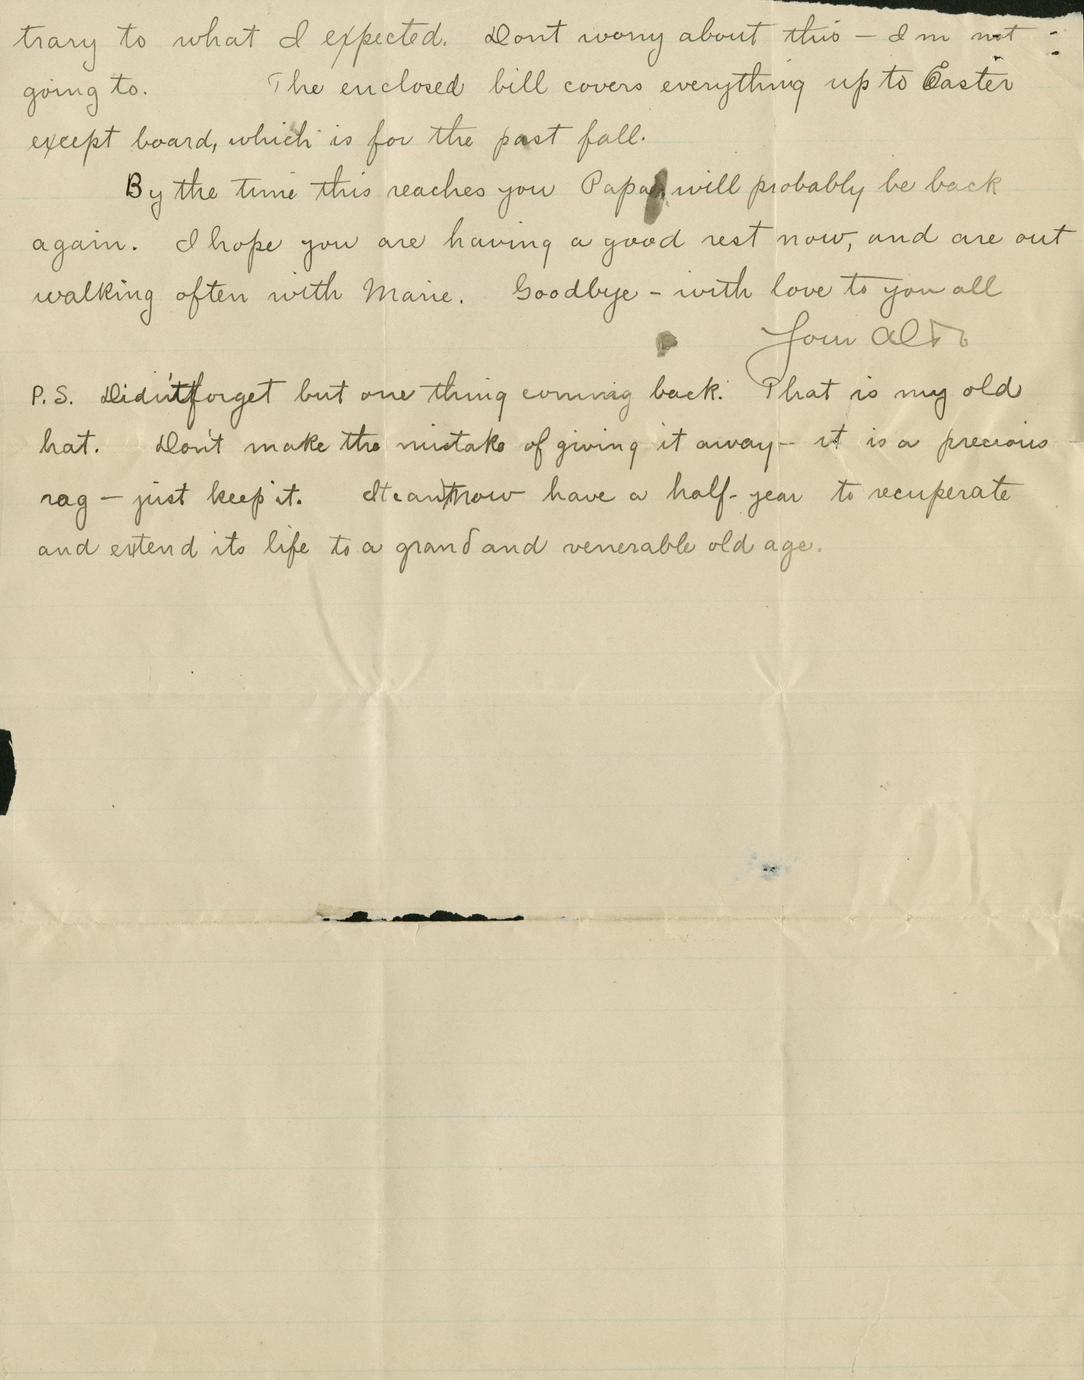 trary to what I expected. Dont worry about this – I'm not
going to. The enclosed bill covers everything up to Easter
except board, which is for the past fall.
By the time this reaches you Papa will probably be back
again. I hope you are having a good rest now, and are out
walking often with Marie. Goodbye – with love to you all
Your Aldo
P.S. Didn't forget but one thing coming back. That is my old
hat. Don't make the mistake of giving it away – it is a precious
rag – just keep it. It can now have a half-year to recuperate
and extend its life to a grand and venerable old age.